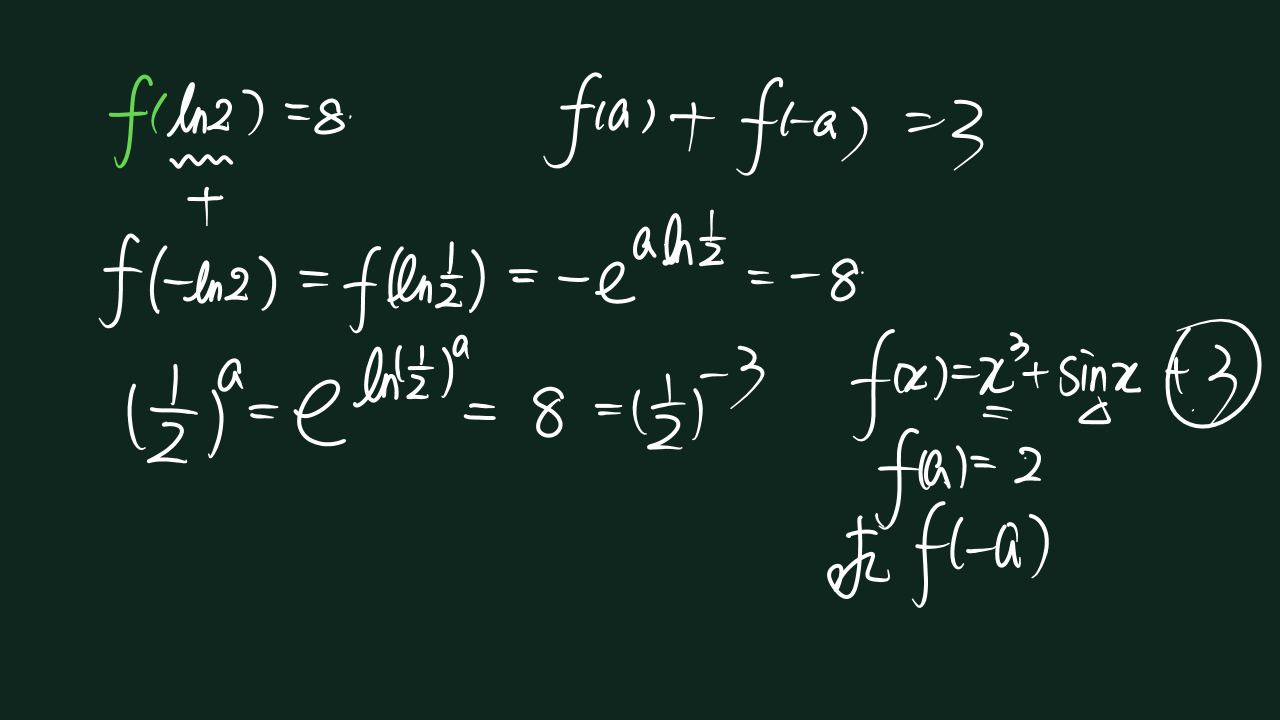 f(ln2) = 8
f(a) + f(-a) = 3
+
f(-ln2) = f(ln 1/2) = -e^{a ln 1/2} = -8
(1/2)^a = e^{ln(1/2)^a} = 8 = (1/2)^{-3}
f(x) = x^3 + sinx + 3
f(a) = 2
求 f(-a)